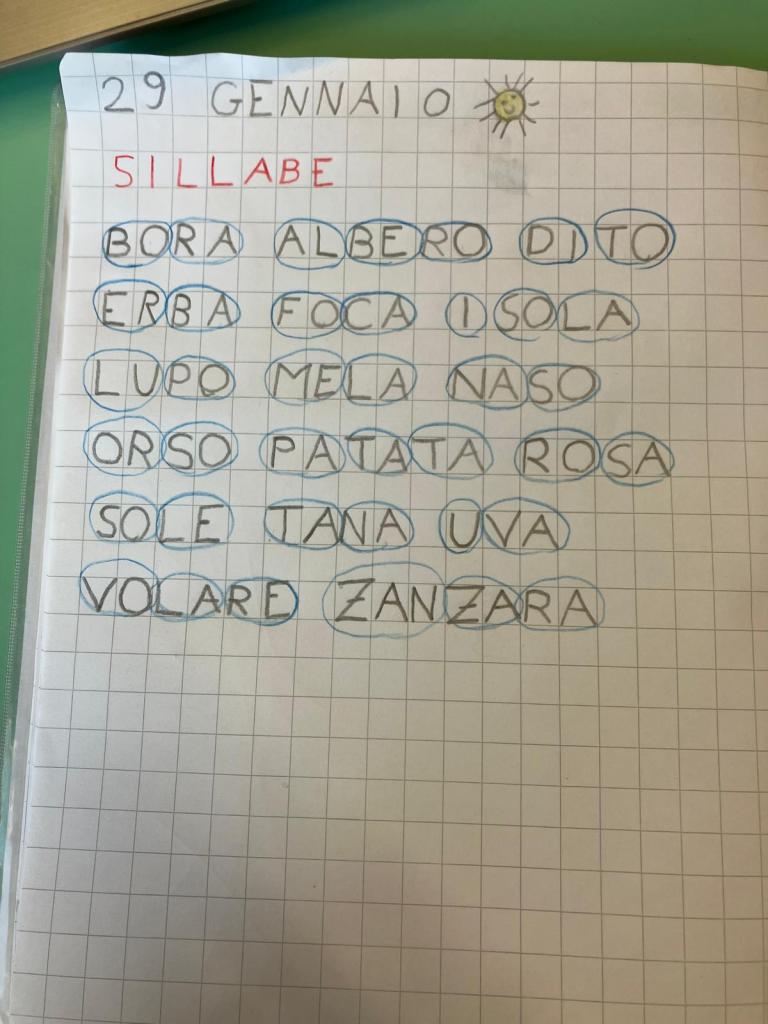 29 GENNAIO
SILLABE
BORA ALBERO DITO
ERBA FOCA ISOLA
LUPO MELA NASO
ORSO PATATA ROSA
SOLE TANA UVA
VOLARE ZANZARA